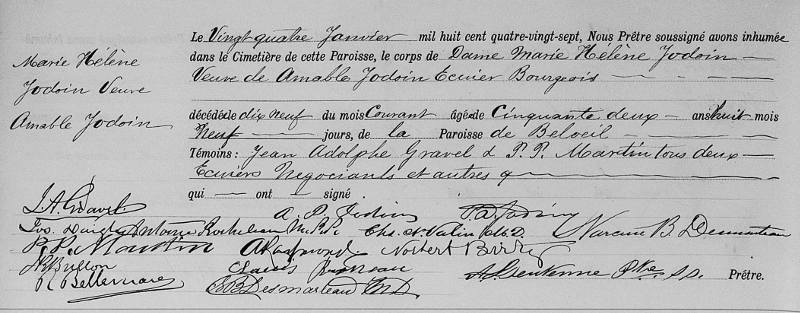 Marie Hélène
Jodoin Veuve
Amable Jodoin
Le Vingt quatre Janvier mil huit cent quatre-vingt-sept, Nous Prêtre soussigné avons inhumée
dans le Cimetière de cette Paroisse, le corps de Dame Marie Hélène Jodoin
Veuve de Amable Jodoin Ecuier Bourgeois
décédée le dix neuf du mois Courant âgée de Cinquante deux ans huit mois
Neuf jours, de la Paroisse de Beloeil.
Témoins: Jean Adolphe Gravel & P. P. Martin tous deux
Ecuiers Negociants et autres q
qui ont signé
J. A. Gravel
Antoine Rocheleau
Chs. N. Valin
Narcisse B. Desmarteau
P. P. Martin
A. Raymond
Norbert
Ptre s.s. Prêtre.
Bellemare
Desmarteau M.D.